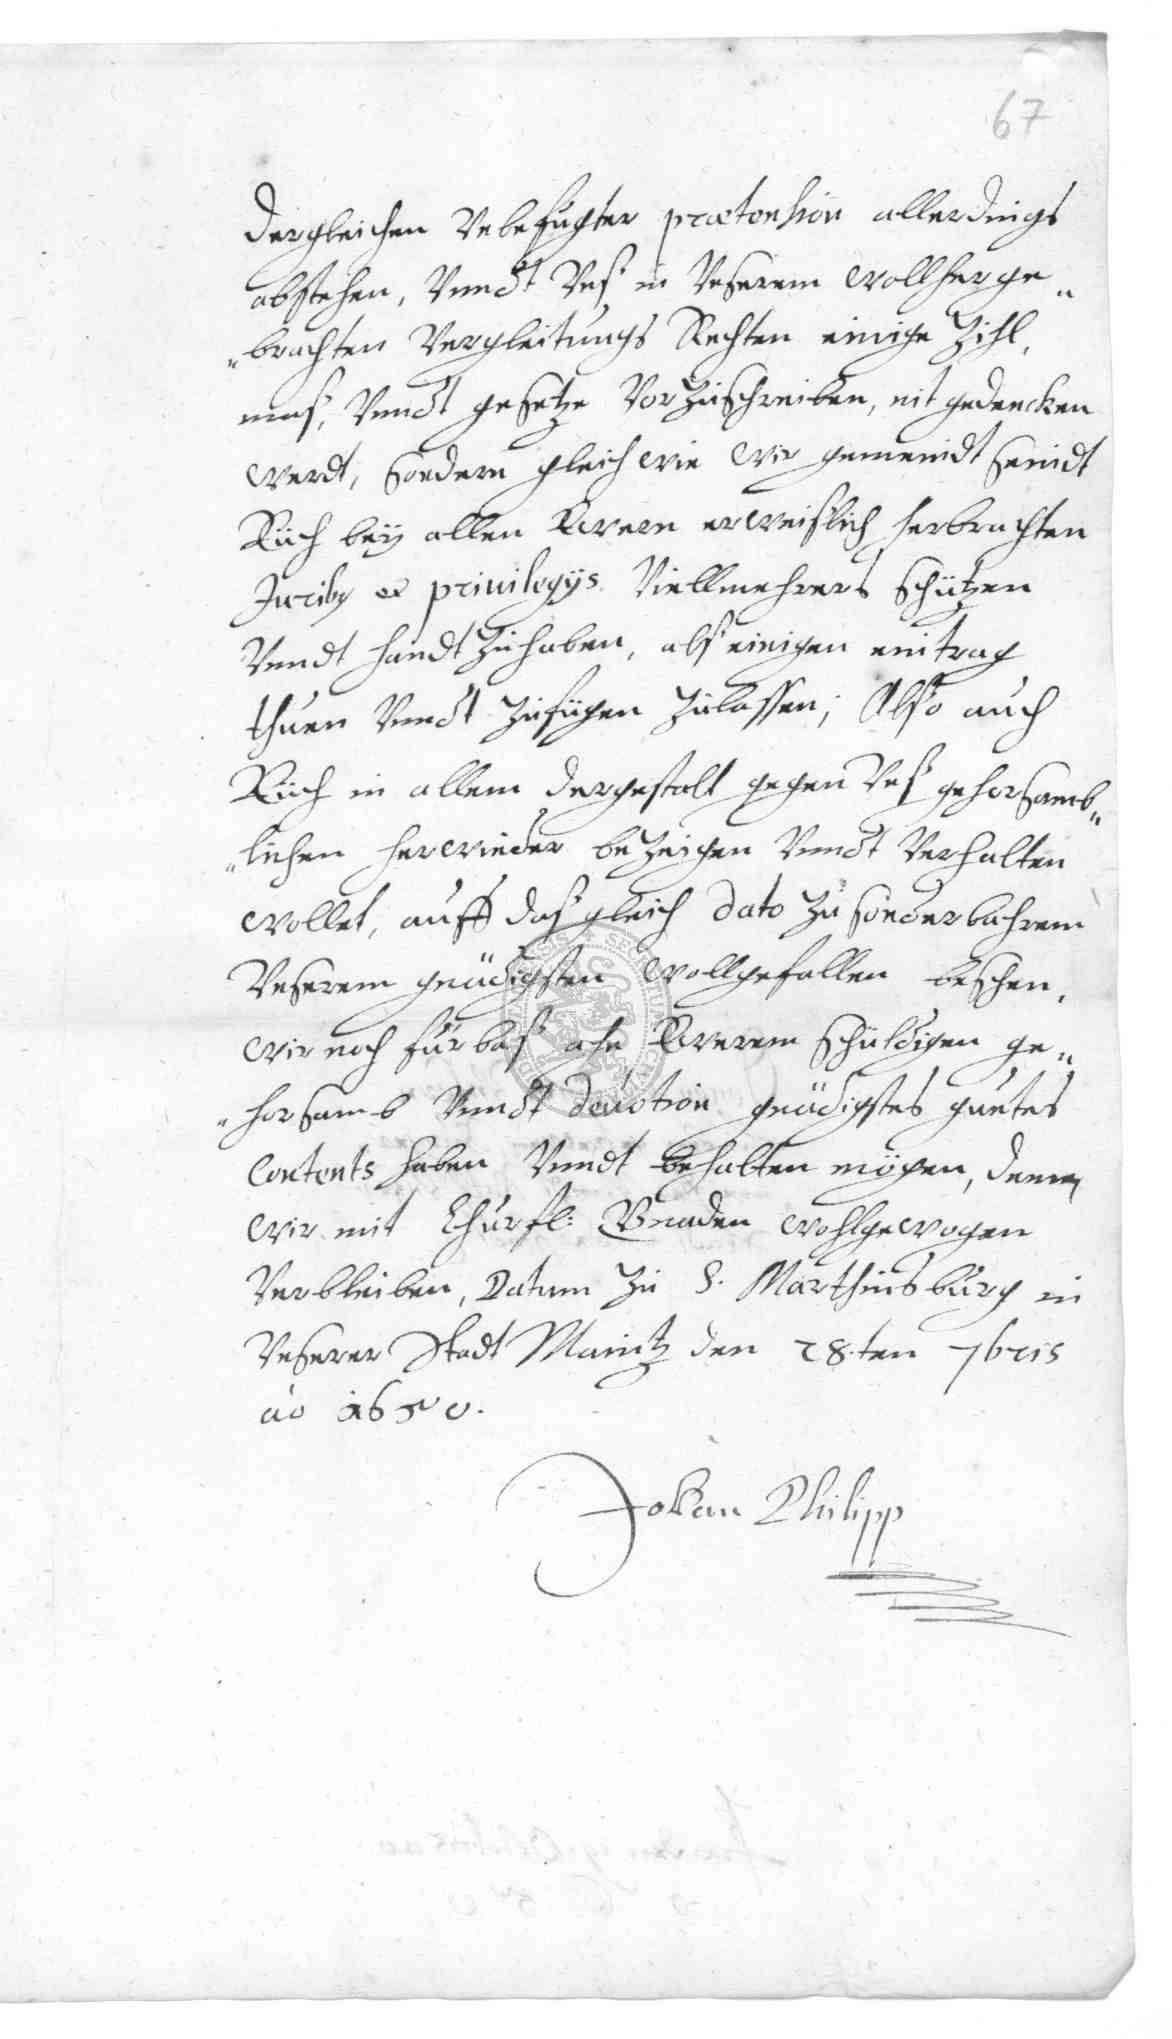 67
dergleichen Vnbefugter prætension allerdings
abstehen, Vnndt Vnß in Vnserem wollherge„
„brachten Vergleitungs Rechten einige Zihl,
maß, Vnndt gesetze Vorzuschreiben, nit gedencken
werdt, sondern gleich wie wir gemeindt seindt
Euch bey allen Eweren erweißlich herbrachten
Juribus et privilegijs Viellmehrers schützen
Vnndt handt zuhaben, alß einigen eintrag
thuen Vnndt zufügen zulassen; Also auch
Euch in allem dergestalt gegen Vnß gehorsamb„
„lichen herwieder bezeigen Vnndt Verhalten
wollet, auff daß gleich dato zu sonderbahrem
Vnserem gnädigsten wollgefallen beschehen,
wir noch fürbaß ahn Ewerem schuldigen ge„
„horsamb Vnndt devotion gnädigstes guetes
Contents haben Vnndt behalten mögen, denen
wir mit Churfl: Gnaden wohlgewogen
Verbleiben, Datum zu S. Marthinsburg in
Vnserer Stadt Maintz den 28.ten 7bris
ao 1650.
Johan Philipp